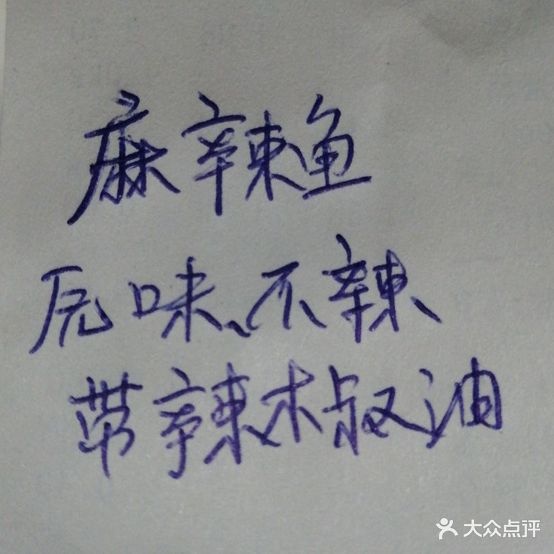 麻辣鱼
原味、不辣
带辣椒油
大众点评